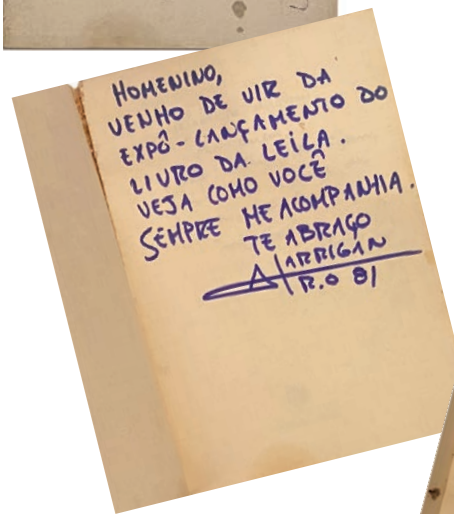 HOMENINO,
VENHO DE VIR DA
EXPÔ-LANÇAMENTO DO
LIVRO DA LEILA.
VEJA COMO VOCÊ
SEMPRE ME ACOMPANHA.
TE ABRAÇO
ARRIGAN
R.O 81